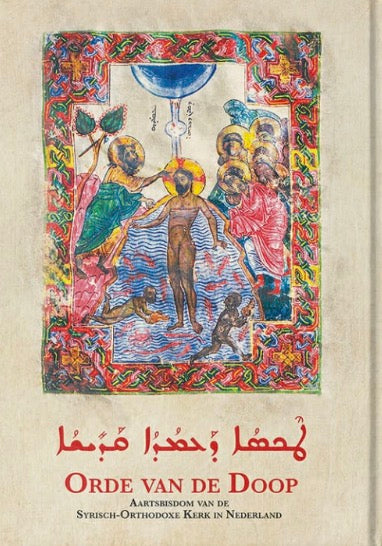 ܛܶܟܣܳܐ ܕܰܥܡܳܕܳܐ ܩܰܕܺܝܫܳܐ
Orde van de Doop
Aartsbisdom van de
Syrisch-Orthodoxe Kerk in Nederland